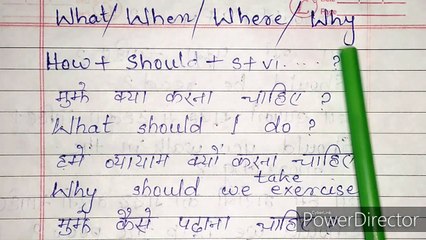 What/When/Where/Why
How + should + s + v₁ ..... ?
मुझे क्या करना चाहिए ?
What should I do ?
हमे व्यायाम क्यों करना चाहिए
Why should we take exercise
मुझे कैसे पढ़ाना चाहिए ?
PowerDirector